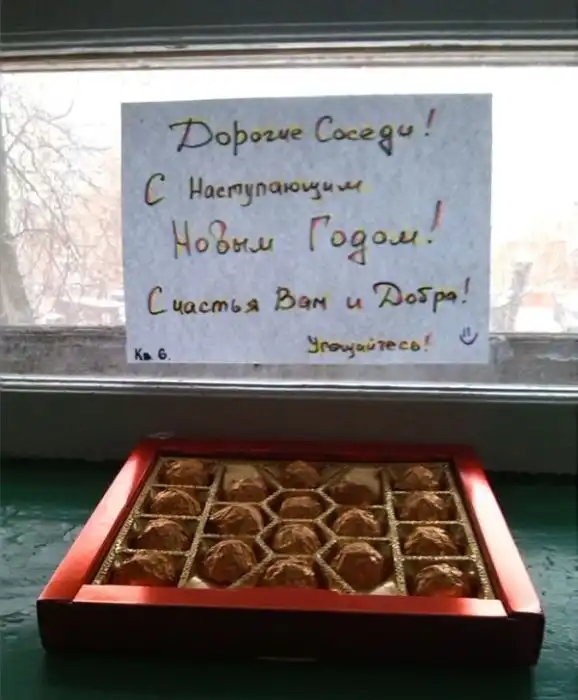 Дорогие Соседи!
С Наступающим
Новым Годом!
Счастья Вам и Добра!
Угощайтесь!
Кв 6.